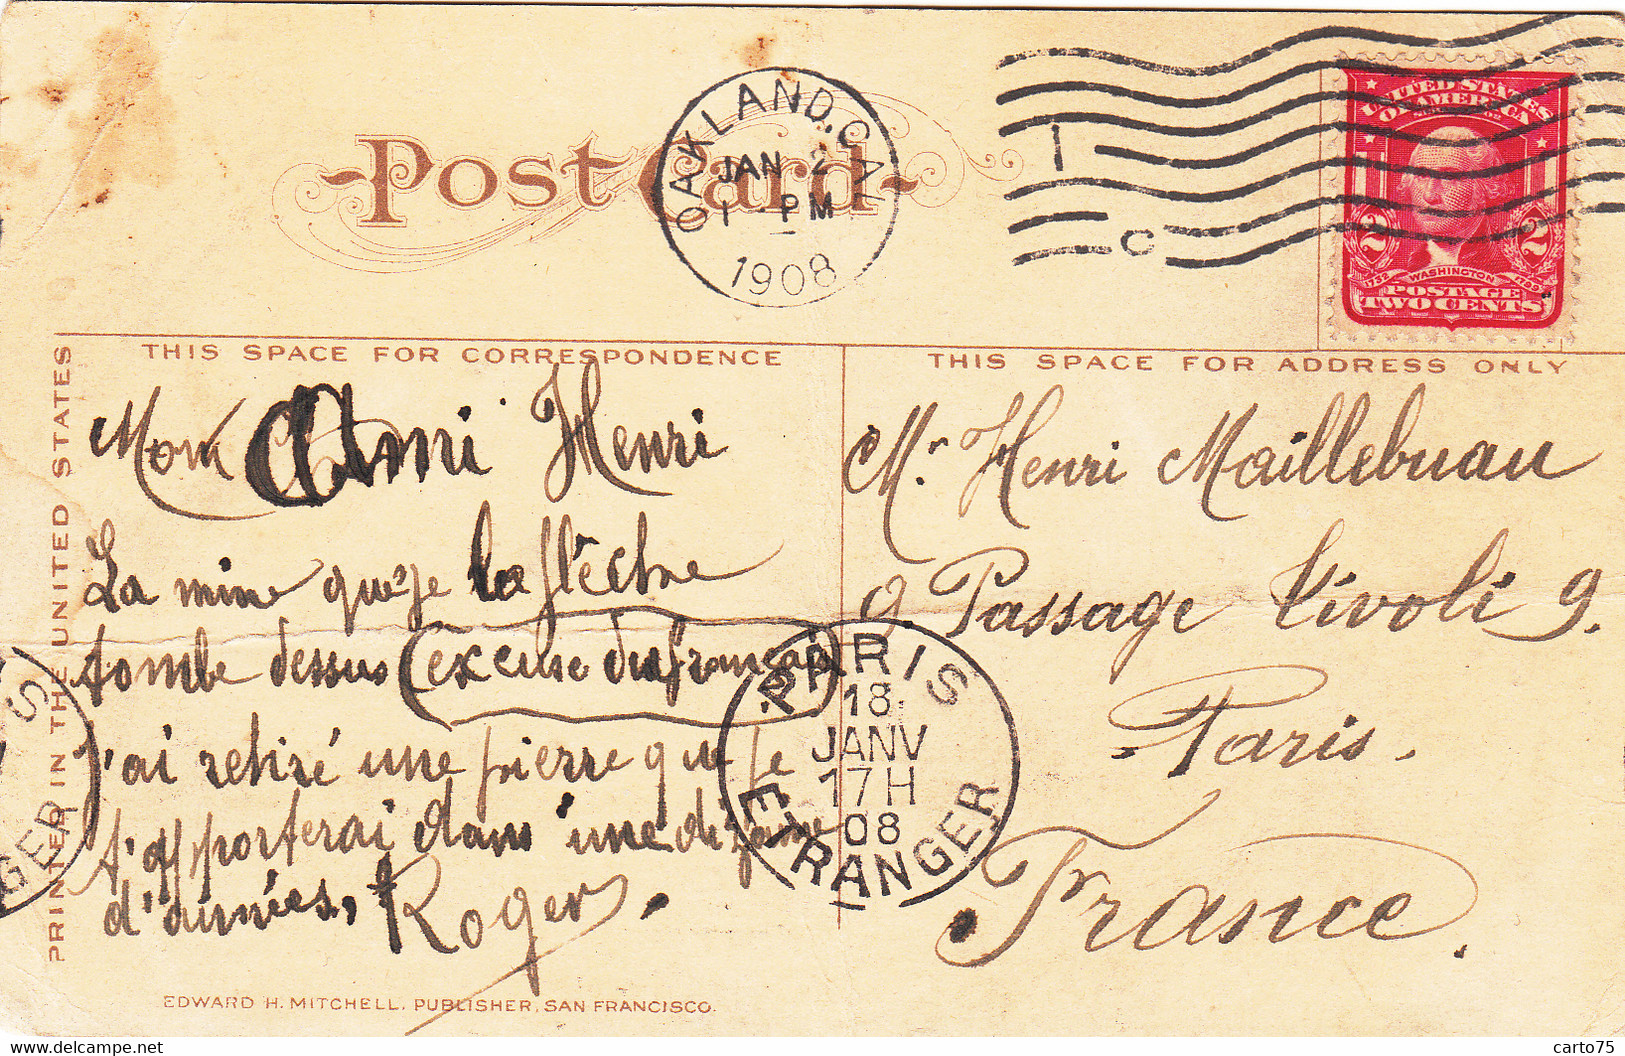 Post Card
OAKLAND, CAL.
JAN 2
1 - PM
1908
1
C
UNITED STATES
OF AMERICA
SERIES 1902
2 2
1732 WASHINGTON 1799
POSTAGE
TWO CENTS
THIS SPACE FOR CORRESPONDENCE
Mon Ami Henri
La mine que je la flêche
tombe dessus (excuse du français)
J'ai retiré une pierre que je
t'apporterai dans une dizaine
d'années, Roger.
THIS SPACE FOR ADDRESS ONLY
Mr. Henri Maillebuau
9. Passage Tivoli 9.
Paris.
France.
PARIS
18
JANV
17H
08
ETRANGER
S
GER
PRINTED IN THE UNITED STATES
EDWARD H. MITCHELL, PUBLISHER, SAN FRANCISCO.
www.delcampe.net
carto75